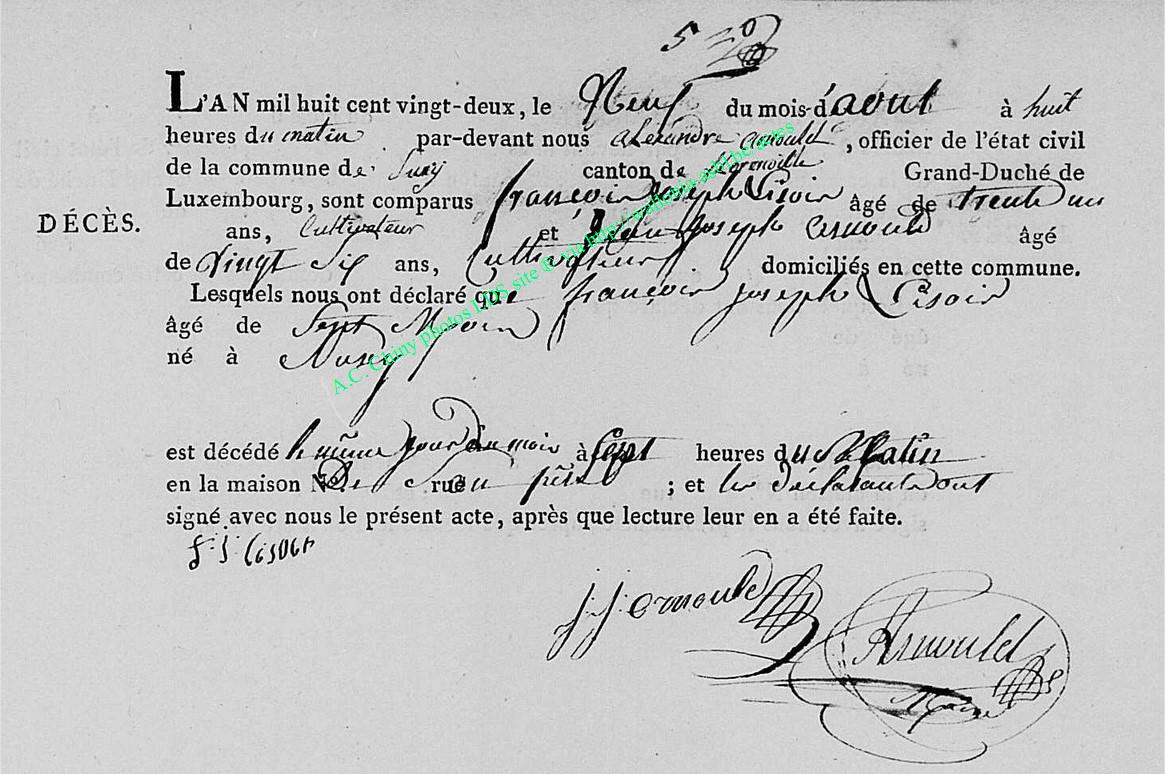 5
L'AN mil huit cent vingt-deux, le Neuf du mois d'aout à huit
heures du matin par-devant nous alexandre arnould, officier de l'état civil
de la commune de Suxy canton de Grand-Duché de
Luxembourg, sont comparus françois Joseph Cisoir âgé de trente un
DÉCÈS.
ans, Cultivateur et Jean Joseph Arnould âgé
de Vingt Six ans, Cultivateur domiciliés en cette commune.
Lesquels nous ont déclaré que françois joseph Cisoir
âgé de Sept Mois
né à
est décédé le même jour du mois à Sept heures du Matin
en la maison No. De rue Son père ; et les déclarants ont
signé avec nous le présent acte, après que lecture leur en a été faite.
f: j: Cisoir
j. j. arnould
Arnould
Maire
A.C. Chiny photos LDS, site